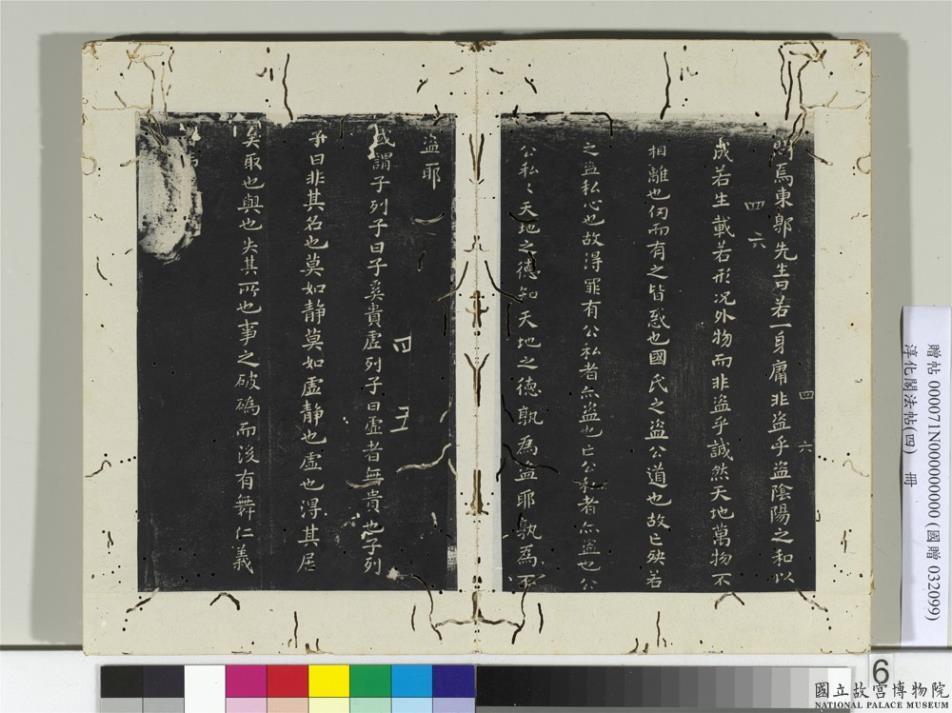 問焉東郭先生曰若一身庸非盜乎盜陰陽之和以
四 六
四 六
成若生載若形况外物而非盜乎誠然天地萬物不
相離也仞而有之皆惑也國氏之盜公道也故亡殃若
之盜私心也故得罪有公私者亦盜也亡公私者亦盜也公
公私〻天地之德知天地之德孰為盜耶孰為不
盜耶
四 五
或謂子列子曰子奚貴虛列子曰虛者無貴也子列
子曰非其名也莫如静莫如虛静也虛也得其居
矣取也與也失其所也事之破䃣而後有舞仁義
贈帖 000071N000000000 (國贈 032099)
淳化閣法帖(四) 冊
6
國立故宮博物院
NATIONAL PALACE MUSEUM